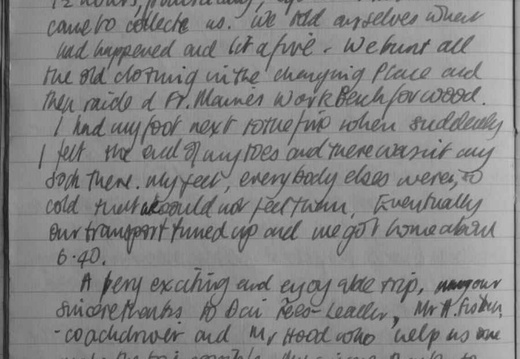 came to collect us. We told ourselves what
had happened and lit a fire. We burnt all
the old clothing in the changing Place and
then raided Fr. Work Bench for wood.
I had my foot next to the fire when suddenly
I felt the end of my toes and there wasn't any
sock there. my feet, everybody elses were, so
cold that we could not feel them. Eventually
our transport turned up and we got home about
6.40.
A very exciting and enjoyable trip, many our
sincere thanks to Dai Rees-Leader, Mr A. Fisher,
-coachdriver and Mr Hood who help us